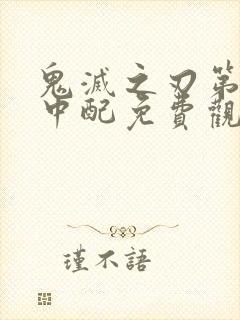 鬼滅之刃第
中配免費觀
瑾不語